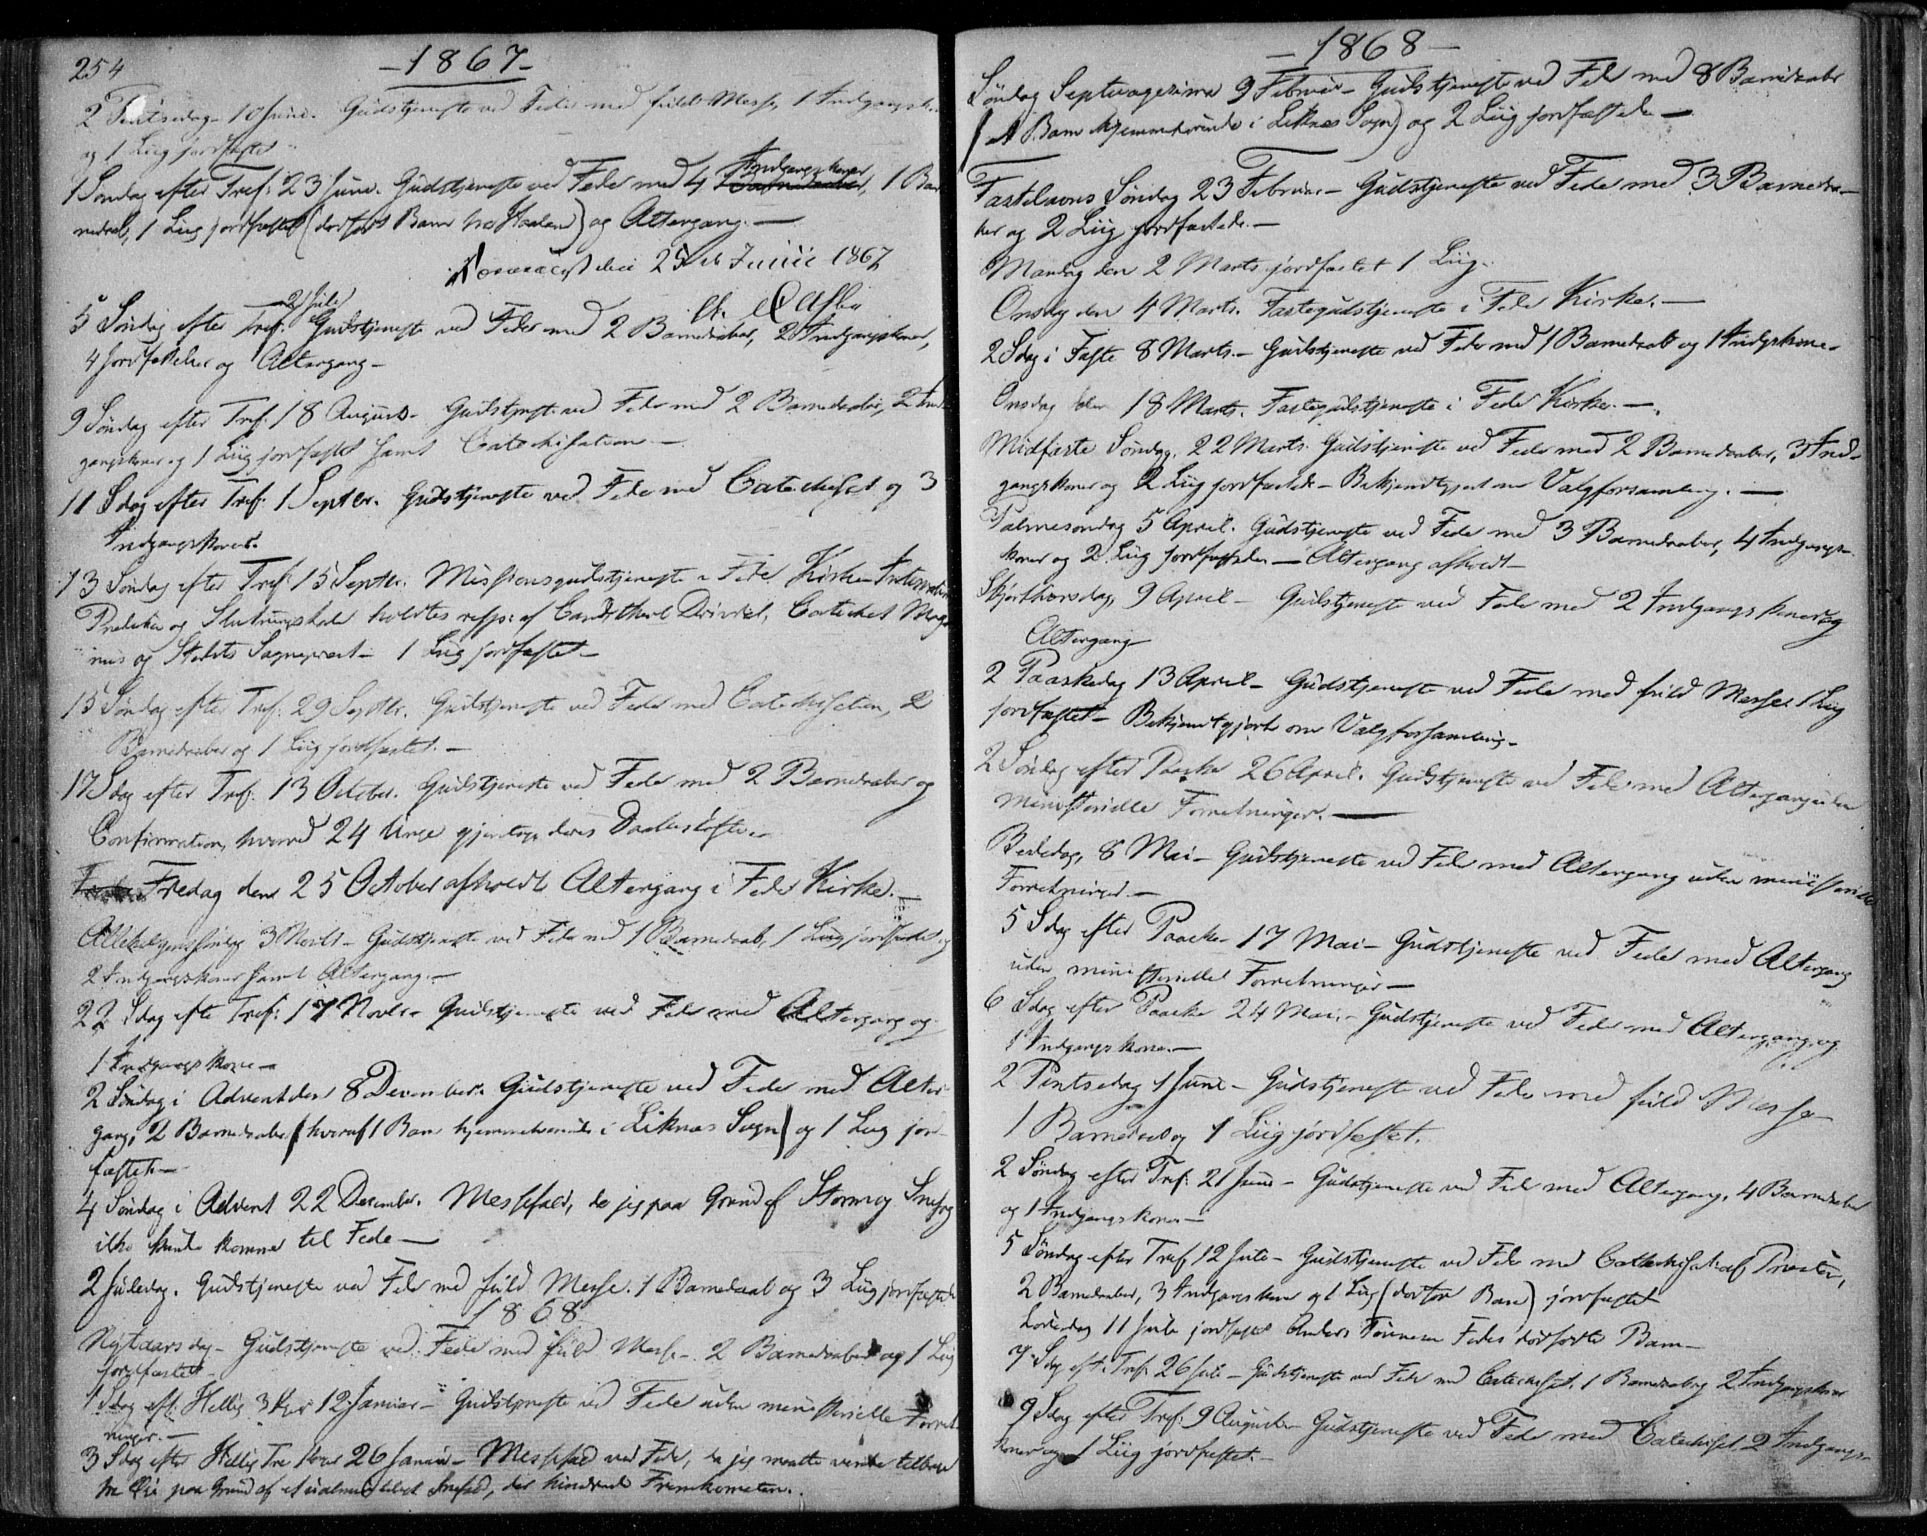 254
-1867-
2 Pintsedag 10 Juni. Gudstjeneste ved Fede med fuld Messe, 1 Indgangsk.
og 1 Liig jordfæstet
1 Søndag efter Tref: 23 Juni. Gudstjeneste ved Fede med 4 Indgangskoner, 1 Bar
nedaab, 1 Liig jordfæstet (dødfødt Barn fra Haaland) og Altergang. —
den 25de Junii 1867
5 Søndag efter Tref: 21 Juli Gudstjeneste ved Fede med 2 Barnedaaber, 2 Indgangskoner,
4 Jordfæstelser og Altergang -
9 Søndag efter Tref. 18 August - Gudstjeneste ved Fede med 2 Barnedaaber, 2 Ind-
gangskoner og 1 Liig jordfæstet samt Catechisation —
11 Sdag efter Tref. 1 Septbr. Gudstjeneste ved Fede med Catechisat og 3
Indgangskoner.
13 Søndag efter Tref: 15 Septbr. Missionsgudstjeneste i Fede Kirke
Prædiken og Slutningstale holdtes resp: af Cand. theol. Catechet Mag
nus og Stedets Sognepræst - 1 Liig jordfæstet -
15 Søndag efter Tref. 29 Septbr. Gudstjeneste ved Fede med Catechisation, 2
Barnedaaber og 1 Liig jordfæstet. -
17 Sdag efter Tref. 13 October. Gudstjeneste ved Fede med 2 Barnedaaber og
Confirmation, hvorved 24 Unge gjentoge deres Daabsløfte. -
Fredag den 25 October afholdt Altergang i Fede Kirke. -
Allehelgenssøndag 3 Novbr - Gudstjeneste ved Fede med 1 Barnedaab, 1 Liig jordfæstet og
2 Indgangskoner samt Altergang. -
22 Sdag efter Tref: 17 Novbr - Gudstjeneste ved Fede med Altergang og
1 Indgangskone -
2 Søndag i Advent den 8 December. Gudstjeneste ved Fede med Alter-
gang, 2 Barnedaaber (hvoraf 1 Barn hjemmehørende i Liknæs Sogn) og 1 Liig jord-
fæstet. -
4 Søndag i Advent 22 December. Messefald, da jeg paa Grund af Storm og Snefog
ikke kunde komme til Fede —
2 Juledag. Gudstjeneste ved Fede med fuld Messe. 1 Barnedaab og 3 Liig jordfæstede
1868
Nytaarsdag - Gudstjeneste ved Fede med fuld Messe - 2 Barnedaaber og 1 Liig
jordfæstet -
1 Sdag eft. Hellig 3 Kgr 12 Januar - Gudstjeneste ved Fede uden ministerielle Forret-
ninger. -
3 Sdag efter Hellig Tre Konger 26 Januar - Messefald ved Fede, da jeg maatte vende tilbage
paa Grund af et ualmindeligt Snefald, der hindrede Fremkomsten.
-1868-
Søndag Septuagesima 9 Februar - Gudstjeneste ved Fede med 8 Barnedaaber
(et Barn hjemmehørende i Liknæs Sogn) og 2 Liig jordfæstede —
Fastelavns Søndag 23 Februar - Gudstjeneste ved Fede med 3 Barnedaa-
ber og 2 Liig jordfæstede. -
Mandag den 2 Marts jordfæstet 1 Liig.
Onsdag den 4 Marts. Fastegudstjeneste i Fede Kirke. -
2 Sdag i Faste 8 Marts - Gudstjeneste ved Fede med 1 Barnedaab og 1 Indgskone -
Onsdag den 18 Marts. Fastegudstjeneste i Fede Kirke. -
Midfaste Søndag. 22 Marts. Gudstjeneste ved Fede med 2 Barnedaaber, 3 Ind-
gangskoner og 2 Liig jordfæstede - Bekjendtgjort om Valgforsamling. —
Palmesøndag 5 April. Gudstjeneste ved Fede med 3 Barnedaaber, 4 Indgangs-
koner og 2 Liig jordfæstede — Altergang afholdt -
Skjærthorsdag, 9 April - Gudstjeneste ved Fede med 2 Indgangskoner og
Altergang
2 Paaskedag 13 April - Gudstjeneste ved Fede med fuld Messe 1 Liig
jordfæstet - Bekjendtgjort om Valgforsamling -
2 Søndag efter Paaske 26 April. Gudstjeneste ved Fede med Altergang uden
ministerielle Forretninger. —
Bededag, 8 Mai - Gudstjeneste ved Fede med Altergang uden ministerielle
Forretninger. -
5 Sdag efter Paaske - 17 Mai - Gudstjeneste ved Fede med Altergang
uden ministerielle Forretninger -
6 Sdag efter Paaske 24 Mai. - Gudstjeneste ved Fede med Altergang og
1 Indgangskone. -
2 Pintsedag 1 Juni - Gudstjeneste ved Fede med fuld Messe
1 Barnedaab og 1 Liig jordfæstet.
2 Søndag efter Tref: 21 Juni - Gudstjeneste ved Fede med Altergang, 4 Barnedaaber
og 1 Indgangskone -
5 Søndag efter Tref 12 Juli - Gudstjeneste ved Fede med Catechisat: af Præsten,
2 Barnedaaber, 3 Indgangskoner og 1 Liig (dødfødt Barn) jordfæstet
Løverdag 11 Juli jordfæstet Anders Tønnesen Fedes dødfødte Barn -
7 Sdag eft. Tref. 26 Juli - Gudstjeneste ved Fede med Catechisat. 1 Barnedaab og 2 Indgangskoner
9 Sdag efter Tref: 9 August - Gudstjeneste ved Fede med Catechisat. 2 Indgangs-
koner og 1 Liig jordfæstet. -